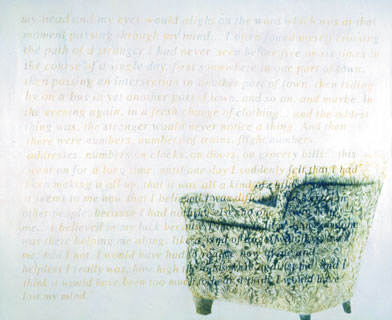 my head and my eyes would alight on the word which was at that
moment passing through my mind... I often found myself crossing
the path of a stranger i had never seen before five or six times in
the course of a single day: first somewhere in one part of town,
then passing an intersection in another part of town, then riding
by on a bus in yet another part of town, and so on, and maybe, in
the evening again, in a fresh change of clothing... and the oddest
thing was, the stranger would never notice a thing. And then
there were numbers, numbers of trains, flight numbers,
addresses, numbers on clocks, on doors, on grocers bills... this
went on for a long time, until one day I suddenly felt that I had
been making it all up, that it was all a kind of
It seems to me now that I
other people, because I had
me... i believed in my luck because
was there helping me along, like a kind of
me; had I not, I would have had to
helpless I really was, how high the
think it would have been too much I would have
lost my mind.